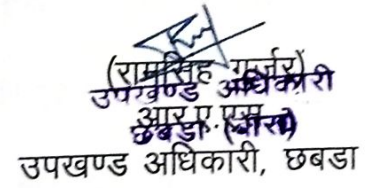 (रामसिंह गुर्जर)
उपखण्ड अधिकारी
आर.ए.एस.
छबडा (बारां)
उपखण्ड अधिकारी, छबडा